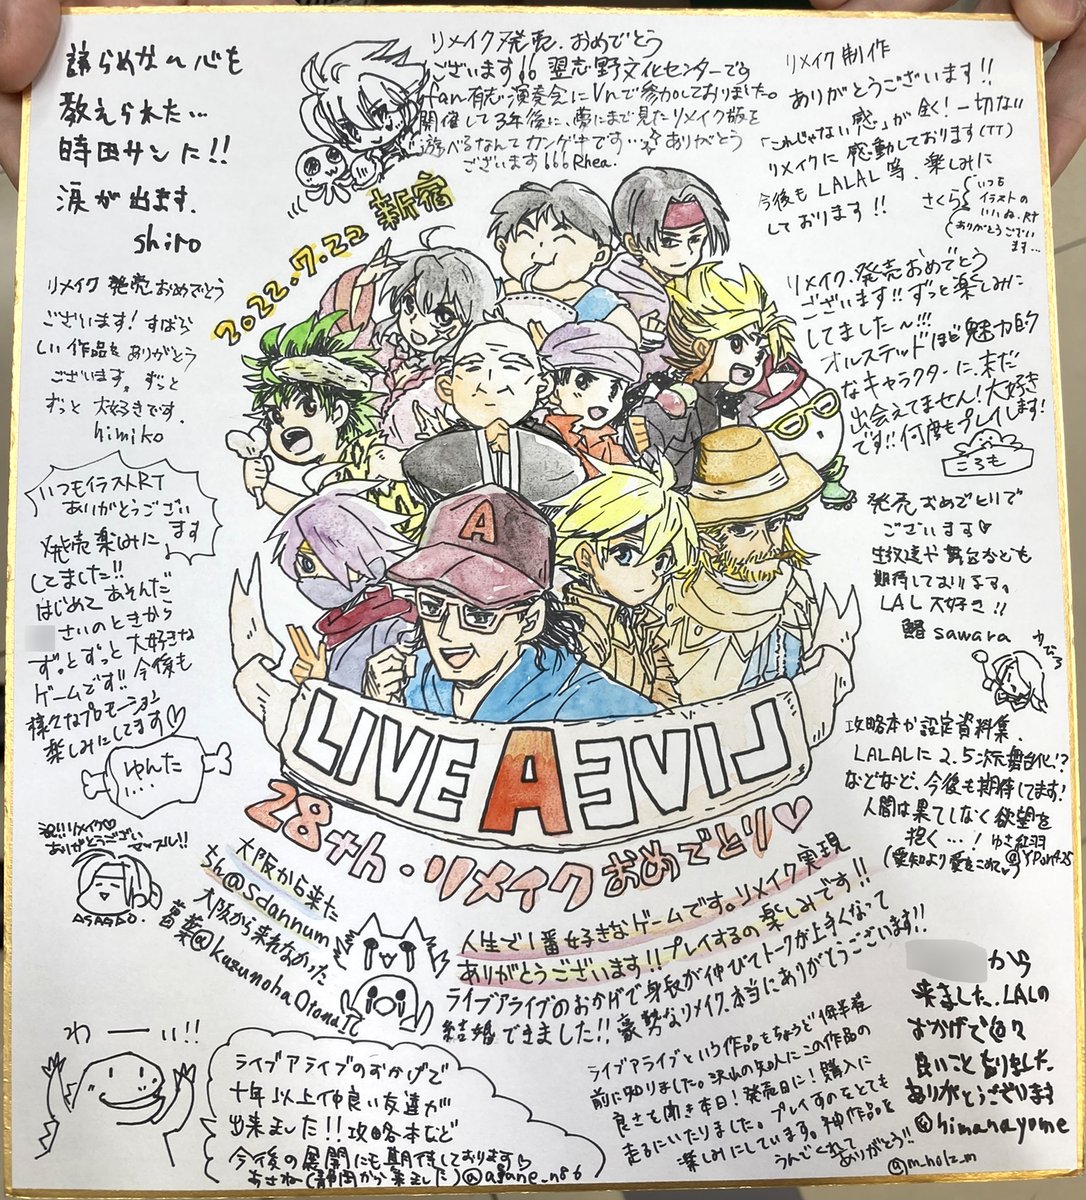 諦らめない心を
教えられた…
時田サンに!!
涙が出ます.
shiro
リメイク発売.おめでとう
ございます!! 習志野文化センターです
fan有志演奏会にVnで参加しておりました。
開催して3年後に、夢にまで見たリメイク版を
遊べるなんてカンゲキです…☆ ありがとう
ございます!!! Rhea.
リメイク制作
ありがとうございます!!
「これじゃない感」が全く!一切ない
リメイクに感動しております(TT)
今後もLALAL等、楽しみに
しております!!
さくら
いつも
イラストの
いいね、RT
ありがとうござい
ます…
2022.7.22 新宿
リメイク発売おめでとう
ございます!すばら
しい作品をありがとう
ございます。ずっと
ずっと大好きです.
himiko
リメイク、発売おめでとう
ございます!!ずっと楽しみに
してました〜!!!
オルステッドほど魅力的
なキャラクターに、未だ
出会えてません!大好き
です!!何度もプレイします!
ころも
いつもイラストRT
ありがとうござい
ます
発売楽しみに
してました!!
はじめてあそんだ
さいのときから
ずっとずっと大好きな
ゲームです!!今後も
様々なプロモーション
楽しみにしてます♡
ゆんた
....
発売おめでとうで
ございます♡
生放送や舞台なども
期待しております。
LAL大好き!!
鰆 sawara
A
LIVE A EVIL
28th・リメイクおめでとう♡
攻略本か設定資料集.
LALALに2.5次元舞台化!?
などなど、今後も期待してます!
人間は果てしなく欲望を
抱く…! ゆさ紅羽
(愛知より愛をこめて♡)
祝!!リメイク♡
ありがとうござい
マッスル!!
ASAGAO.
大阪から来た
Sh@Sdannum
大阪から来れなかった
葛葉@kuzunohaOtonaTC
人生で1番好きなゲームです。リメイク実現
ありがとうございます!!プレイするの楽しみです!!
ライブアライブのおかげで身長が伸びてトークが上手くなって
結婚できました!!豪勢なリメイク、本当にありがとうございます!!
から
来ました.LALの
おかげで色々
良いことありました
ありがとうございます
@himanayome
わーい!!
ライブアライブのおかげで
十年以上仲良い友達が
出来ました!!攻略本など
今後の展開にも期待しております♡
あさね(静岡から来ました)@a9ane_n86
ライブアライブという作品をちょうど1年半程
前に知りました。沢山の知人にこの作品の
良さを聞き本日!発売日に!購入に
走るにいたりました。プレイするのをとても
楽しみにしています。神作品を
うんでくれて
ありがとう!!
@m_holz_m